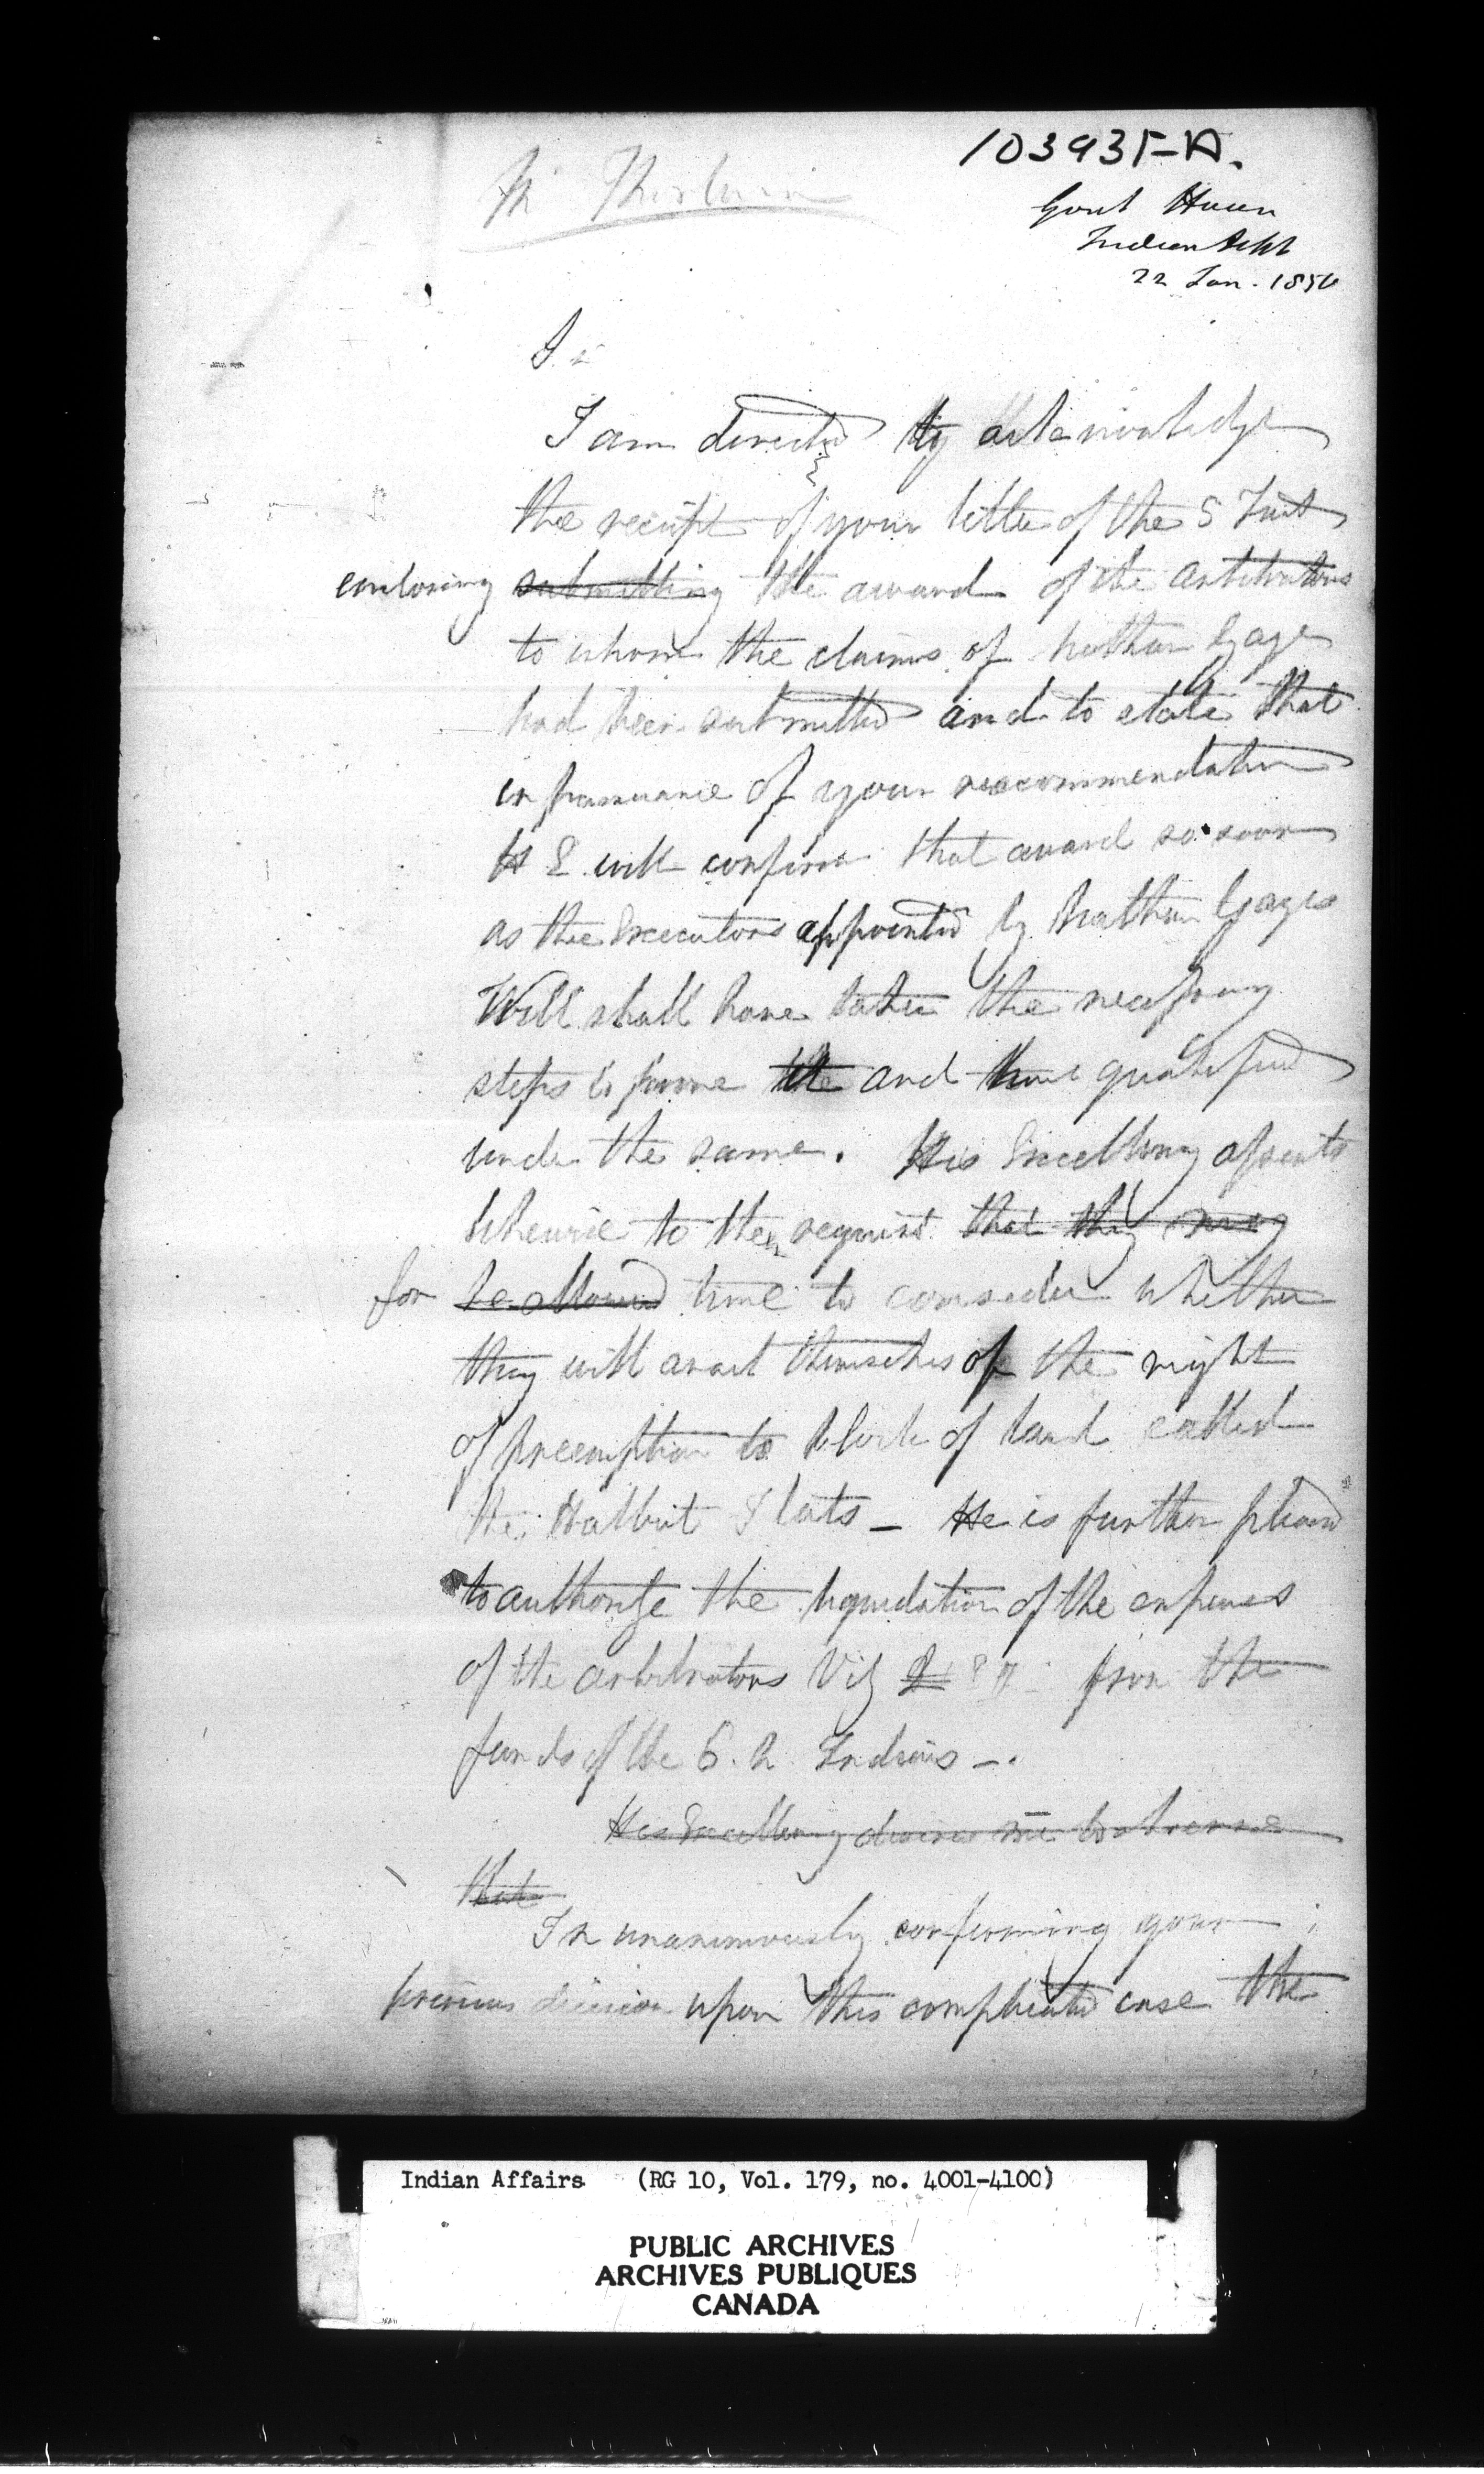 103935-A.
Govt House
Indian Dept
22 Jan. 1850
Sir
I am directed to acknowledge
the receipt of your letter of the 5 Inst
enclosing submitting the award of the arbitrators
to whom the claims of Nathan Gage
had been submitted and to state that
in pursuance of your recommendation
H E will confirm that award so soon
as the Executors appointed by Nathan Gages
Will shall have taken the necessary
steps to prove the and have qualified
under the same. His Excellency assents
likewise to their request that they may
for be allowed time to consider whether
they will avail themselves of the right
of preemption to block of land called
the Halbut Flats – He is further pleased
to authorize the liquidation of the expenses
of the arbitrators Viz from the
funds of the 6. N. Indians –.
His Excellency desires me to observe
that
In unanimously confirming your
previous decision upon this complicated case the
Indian Affairs (RG 10, Vol. 179, no. 4001-4100)
PUBLIC ARCHIVES
ARCHIVES PUBLIQUES
CANADA